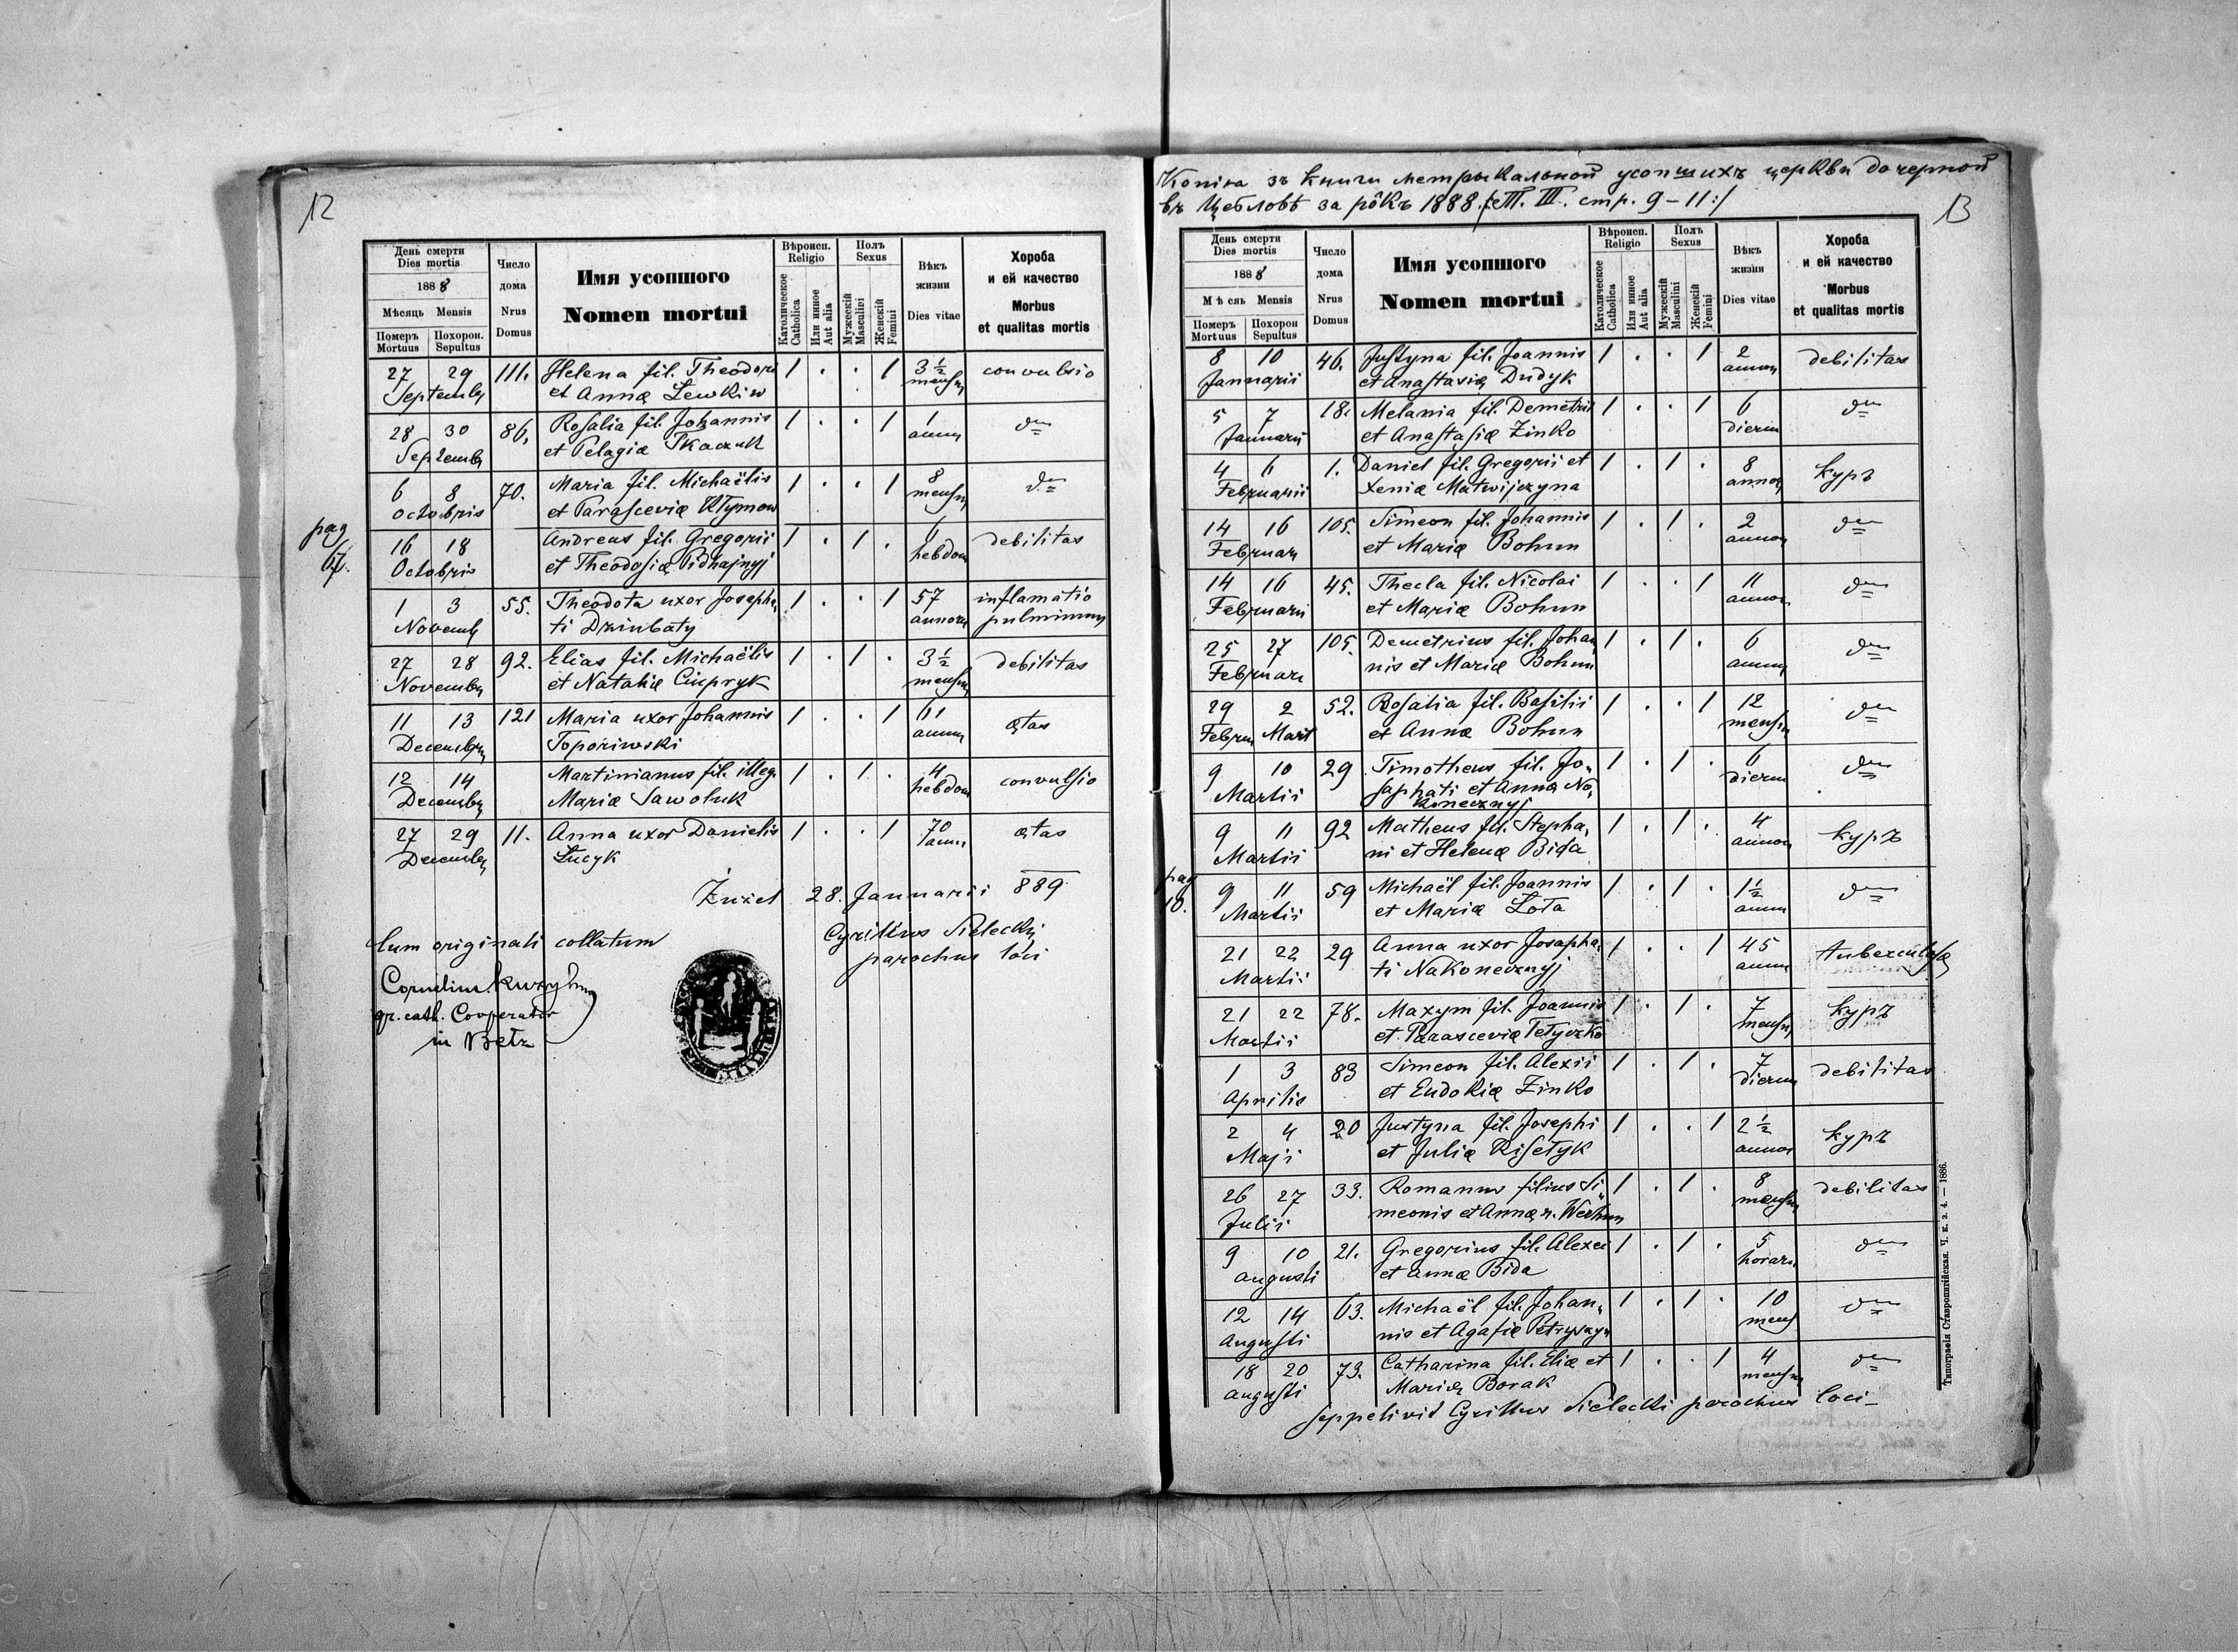 12
День смерти
Dies mortis
1888
Мѣсяць Mensis
Померъ Похорон.
Mortuus Sepultus
Число
дома
Nrus
Domus
Имя усопшого
Nomen mortui
Вѣроисп.
Religio
Католическое
Catholica
Или инное
Aut alia
Полъ
Sexus
Мужескій
Masculini
Женскій
Femini
Вѣкъ
жизни
Dies vitae
Хороба
и ей качество
Morbus
et qualitas mortis
27 29 111. Helena fil. Theodori 1 . . 1 3 1/2 convulsio
Septembr et Annæ Lewkiw mensu
28 30 86. Rosalia fil. Johannis 1 . . 1 1 dtto
Septembr et Pelagiæ Tkaczuk annu
6 8 70. Maria fil. Michaëlis 1 . . 1 8 dtto
Octobris et Parasceviæ Klymow mensu
pag
16 18 Andreas fil. Gregorii 1 . 1 . 6 debilitas
Octobris et Theodosiæ Pidhajnyj hebdom
1 3 55. Theodota uxor Josepha, 1 . . 1 57 inflamatio
Novemb ti Dziubaty annoru pulminum
27 28 92. Elias fil. Michaëlis 1 . 1 . 3 1/2 debilitas
Novembr et Nataliæ Ciupryk mensu
11 13 121 Maria uxor Johannis 1 . . 1 61 ætas
Decembr Toporiwski annu
12 14 Martinianus fil. illeg. 1 . 1 . 4 convulsio
Decembr Mariæ Sawoluk hebdom
27 29 11. Anna uxor Danielis 1 . . 1 70 ætas
Decembr Łucyk annu
Żużel 28. Januarii 889
Cyrillus Sielecki
parochus loci
Cum originali collatum
Cornelius
gr. cath. Cooperator
in Belz
Копіѧ зъ книги метрыкальной усопшихъ церкви дочерной
въ Цебловѣ за рôкъ 1888. /:Т. III. стр. 9-11:/
13
День смерти
Dies mortis
1888
Мѣсяь Mensis
Померъ Похорон
Mortuus Sepultus
Число
дома
Nrus
Domus
Имя усопшого
Nomen mortui
Вѣроисп.
Religio
Католическое
Catholica
Или инное
Aut alia
Полъ
Sexus
Мужескій
Masculini
Женскій
Femini
Вѣкъ
жизни
Dies vitae
Хороба
и ей качество
Morbus
et qualitas mortis
8 10 46. Justyna fil. Joannis 1 . . 1 2 debilitas
Januarii et Anastasiæ Dudyk annoru
5 7 18. Melania fil. Demetrii 1 . . 1 6 dtto
Januarii et Anastasiæ Zinko dierum
4 6 1. Daniel fil. Gregorii et 1 . 1 . 8 куръ
Februarii Xeniæ Matwijczyna annor
14 16 105. Simeon fil. Johannis 1 . 1 . 2 dtto
Februar et Mariæ Bohun annor
14 16 45. Thecla fil. Nicolai 1 . . 1 11 dtto
Februarii et Mariæ Bohun annor
25 27 105. Demetrius fil. Johan, 1 . 1 . 6 dtto
Februar nis et Mariæ Bohun annu
29 2 52. Rosalia fil. Basilii 1 . . 1 12 dtto
Febru Mart et Annæ Bohun mensu
9 10 29 Timotheus fil. Jo, 1 . 1 . 6 dtto
Martii saphati et Annæ Na,
konecznyj dierum
9 11 92 Matheus fil. Stepha, 1 . 1 . 4 куръ
Martii ni et Helenæ Bida annor
pag
10.
9 11 59 Michaël fil. Joannis 1 . 1 . 1 1/2 dtto
Martii et Mariæ Łota annu
21 22 29 Anna uxor Josapha, 1 . . 1 45 tuberculosa
Martii ti Nakonecznyj annu
21 22 78. Maxym fil. Joannis 1 . 1 . 7 куръ
Martii et Parasceviæ Tetyczko mensu
1 3 83 Simeon fil. Alexii 1 . 1 . 7 debilitas
Aprilis et Eudokiæ Zinko dierum
2 4 20 Justyna fil. Josephi 1 . . 1 2 1/2 куръ
Maji et Juliæ Kisetyk annor
26 27 33. Romanus filius Si, 1 . 1 . 8 debilitas
Julii meonis et Annæ n. Werhun mensu
9 10 21. Gregorius fil. Alexii 1 . 1 . 5 dtto
Augusti et Annæ Bida horaru
12 14 63. Michaël fil. Johan, 1 . 1 . 10 dtto
Augusti nis et Agafiæ Petryszyn mens
18 20 73. Catharina fil. Eliæ et 1 . . 1 4 dtto
Augusti Mariæ Borak mensu
Seppelivit Cyrillus Sielecki parochus loci
Типографія Ставропигійская. Ч. к. з. 4. — 1886.